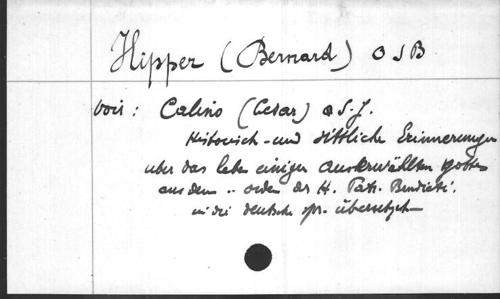 Hipper (Bernard) OSB
voir : Calino (Cesar) S.J.
Historisch-und sittliche Erinnerungen
uber das leben einiger Auserwählten gottes
aus dem .. orden des H. Patr. Benedicti,
in die deutsche spr. übersetzet